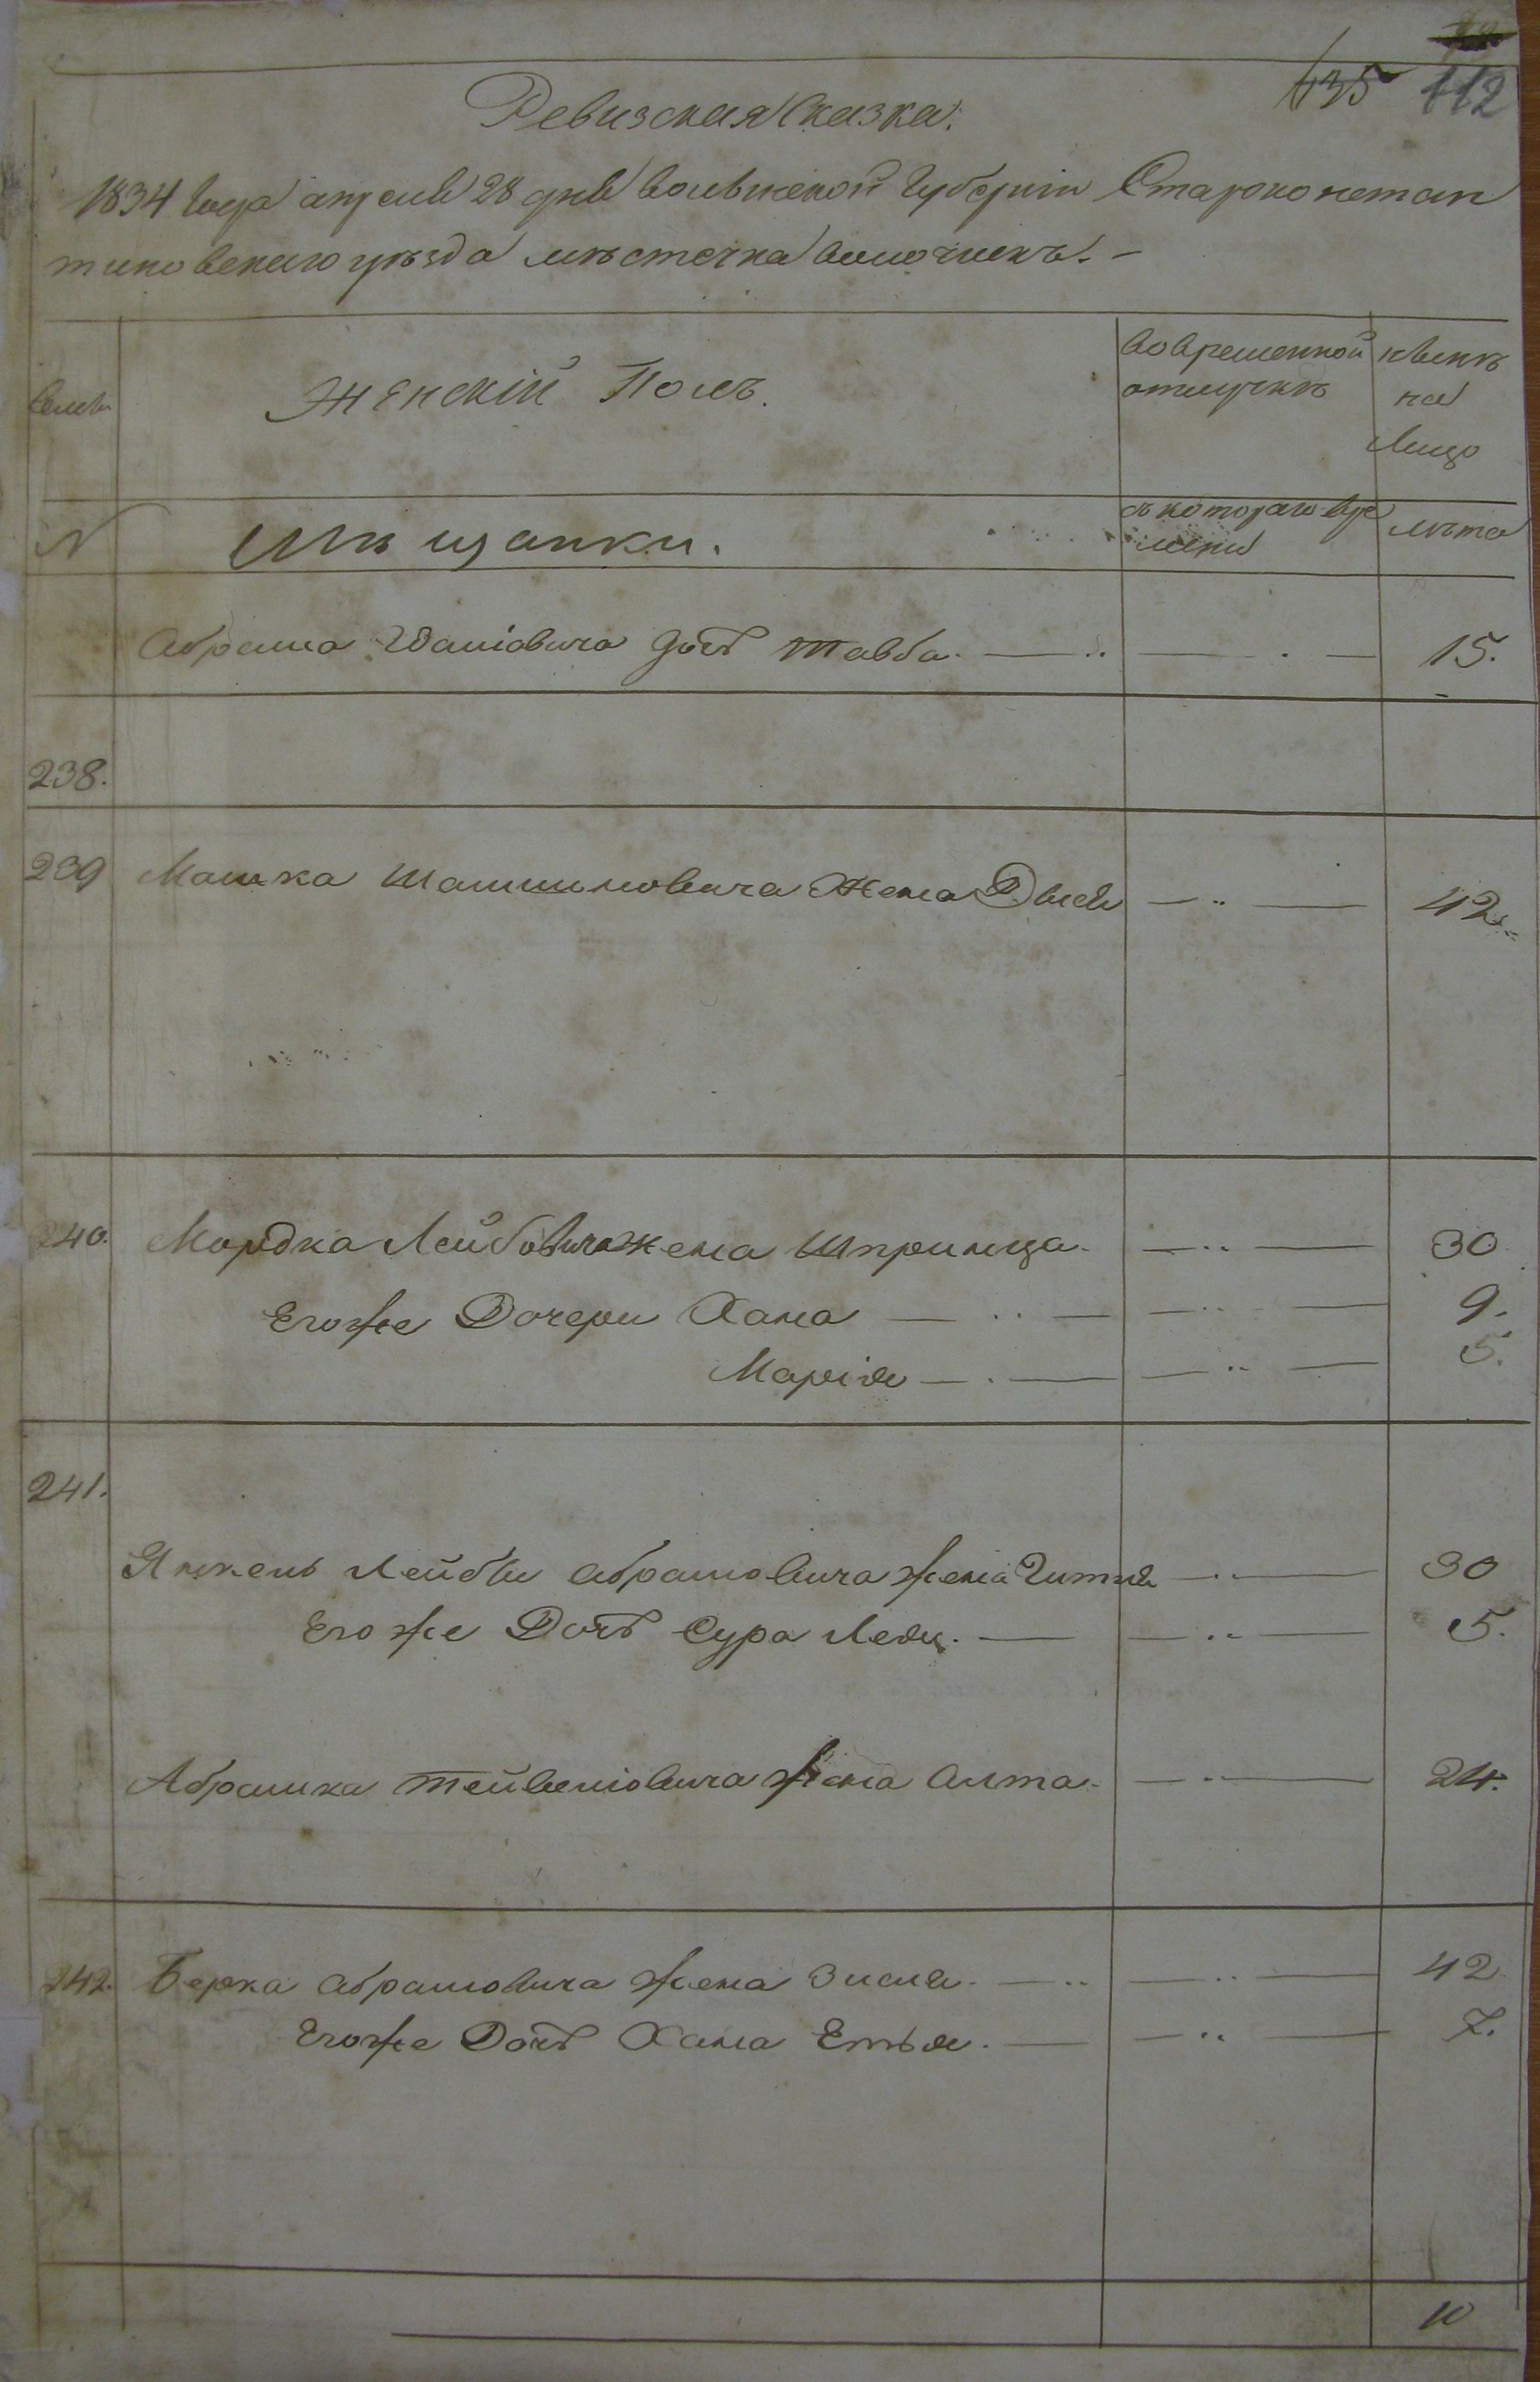 135 112
Ревизская Сказка.
1834 Года апреля 28 дня волынской Губернiи Староконстан
тиновского уѣзда мѣстечка волочискъ. -
семьи
Женскiй Полъ.
во временной отлучкѣ
на Лицо
N
Мѣщанки.
съ котораго вре
мени
лѣта
Абрама дочь Тавба. 15.
238.
239 Мошка Шашимовича жена Двося 42
240. Мордка Лейбовича жена Шпринца. 30
Егоже Дочери Хана 9.
Марiя 5.
241.
Янкель Лейбы абрамовича жена Гитля 30
Егоже Дочь Сура Лея. 5.
Абрамка Тейвелiовича жена алта. 24.
242. Берка абрамовича жена Зисля. 42
Егоже Дочь Хана Етья. 7.
10